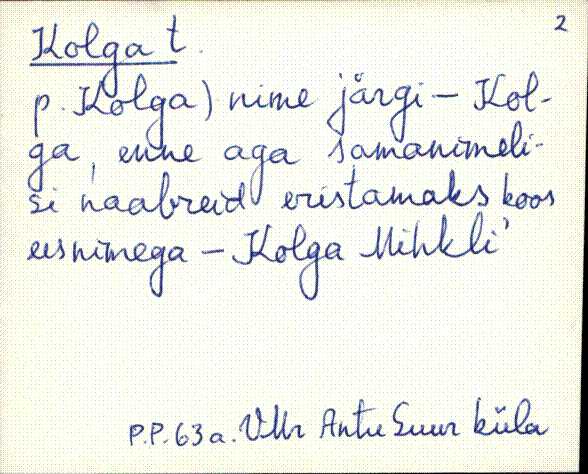 2
Kolga t.
p. Kolga) nime järgi – Kol-
ga, enne aga samanimeli-
si naabreid eristamaks koos
eesnimega – Kolga Mihkli'
P.P. 63 a. VMr Antu Suur küla